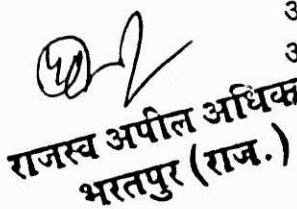 अ
अ
राजस्व अपील अधिक
भरतपुर (राज.)